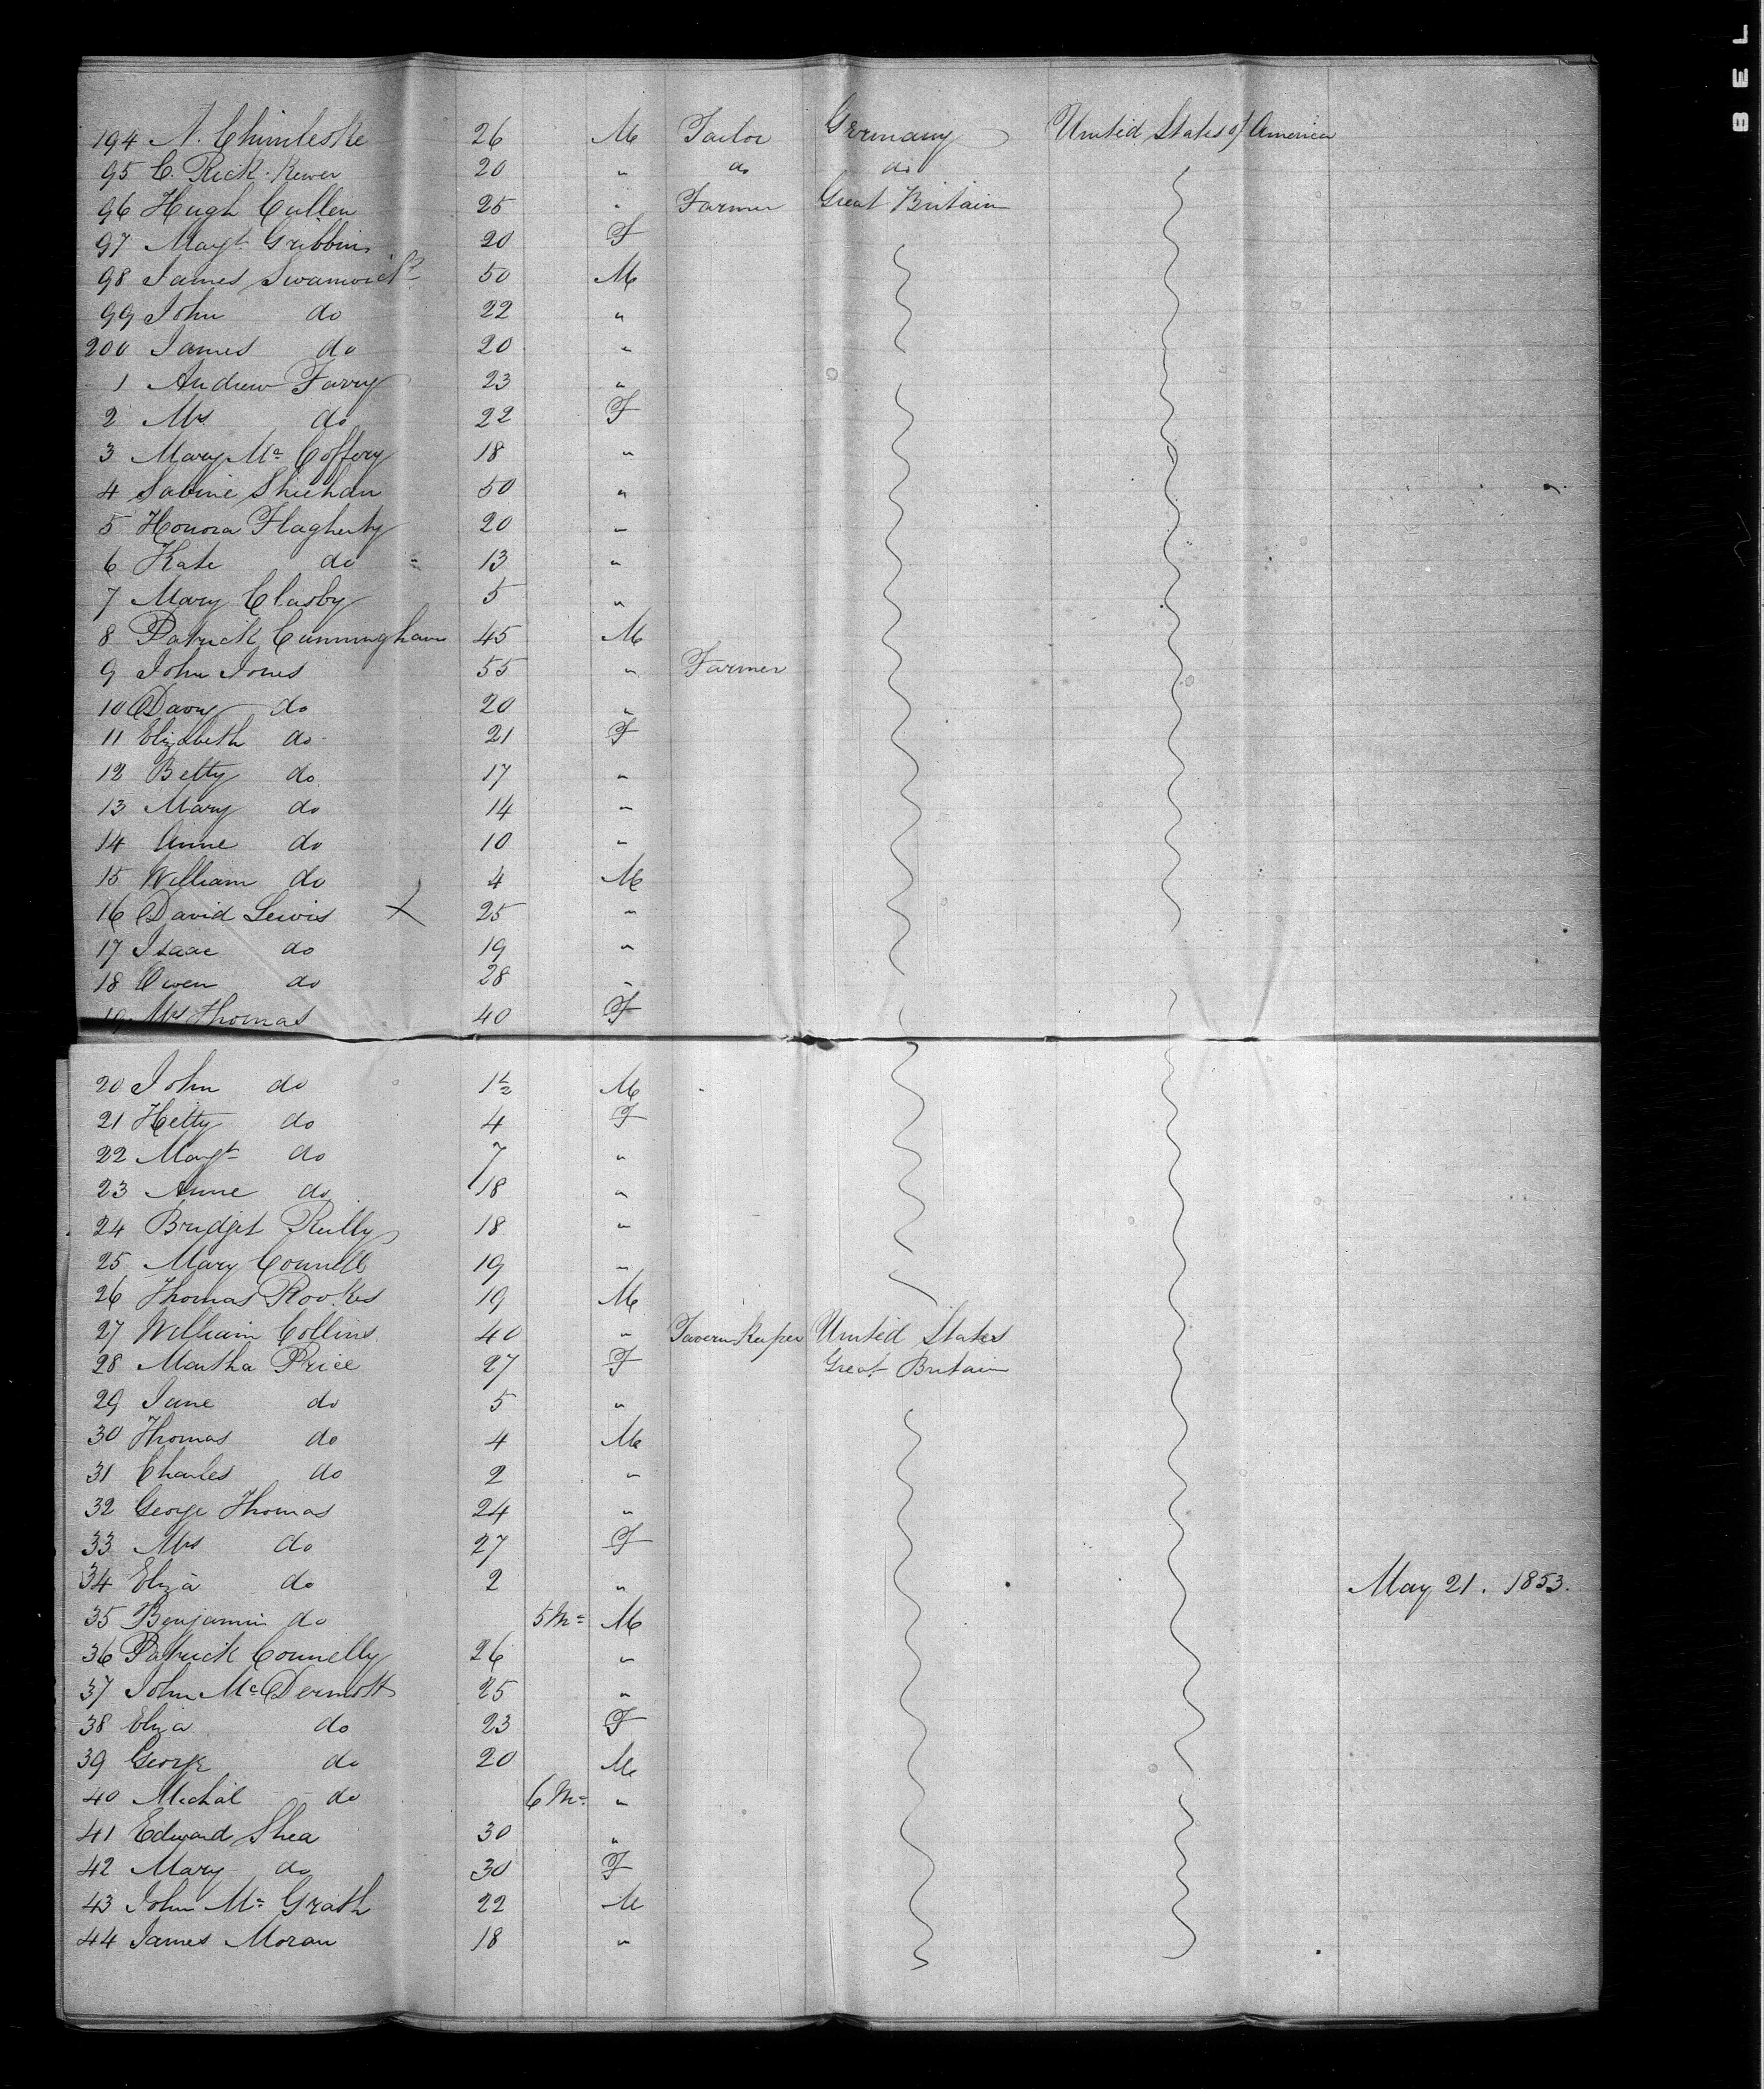 194 A. Chimleske 26 M Tailor Germany United States of America
95 C. Rick. Kewer 20 " do do
96 Hugh Cullen 25 " Farmer Great Britain
97 Mayt Gribbin 20 F
98 James Swanwick 50 M
99 John do 22 "
200 James do 20 "
1 Andrew Farry 23 "
2 Mrs do 22 F
3 Mary Mc Coffery 18 "
4 Sabine Shiehan 50 "
5 Honora Flagherty 20 "
6 Kate do 13 "
7 Mary Clasby 5 "
8 Patrick Cunningham 45 M
9 John Jones 55 " Farmer
10 Davy do 20 "
11 Elizabeth do 21 F
12 Betty do 17 "
13 Mary do 14 "
14 Anne do 10 "
15 William do 4 M
16 David Lewis X 25 "
17 Isaac do 19 "
18 Owen do 28 "
19 Mrs Thomas 40 F
20 John do 1½ M
21 Hetty do 4 F
22 Mayt do 7 "
23 Anne do 18 "
24 Bridget Reilly 18 "
25 Mary Connell 19 "
26 Thomas Rookes 19 M
27 William Collins 40 " Tavern Keeper United States
28 Martha Price 27 F Great Britain
29 Jane do 5 "
30 Thomas do 4 M
31 Charles do 2 "
32 George Thomas 24 "
33 Mrs do 27 F
34 Eliza do 2 " May 21. 1853.
35 Benjamin do 5 Ms M
36 Patrick Connelly 26 "
37 John McDermott 25 "
38 Eliza do 23 F
39 George do 20 M
40 Michal do 6 Ms "
41 Edward Shea 30 "
42 Mary do 30 F
43 John Mc Grath 22 M
44 James Moran 18 "
BEL